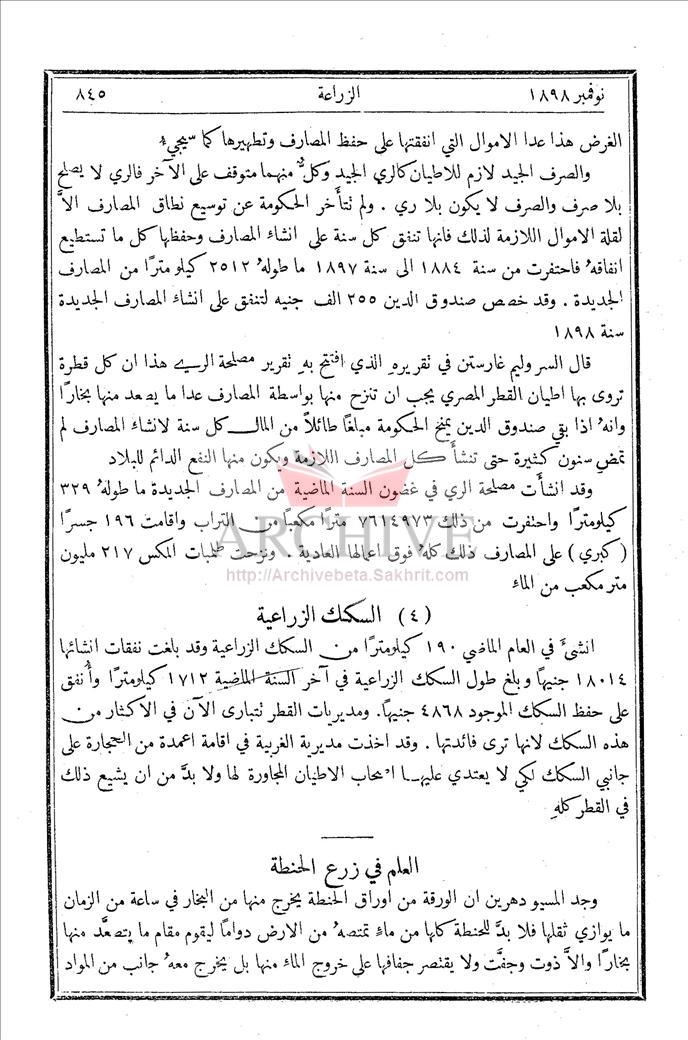 نوفمبر ١٨٩٨ الزراعة ٨٤٥
الغرض هذا عدا الاموال التي انفقتها على حفظ المصارف وتطهيرها كما سيجيءُ
والصرف الجيد لازم للاطيان كالري الجيد وكلٌّ منهما متوقف على الآخر فالري لا يصلح
بلا صرف والصرف لا يكون بلا ري . ولم نتأَخر الحكومة عن توسيع نطاق المصارف الاَّ
لقلة الاموال اللازمة لذلك فانها تنفق كل سنة على انشاء المصارف وحفظها كل ما تستطيع
انفاقهُ فاحتفرت من سنة ١٨٨٤ الى سنة ١٨٩٧ ما طولهُ ٢٥١٢ كيلومترًا من المصارف
الجديدة . وقد خصص صندوق الدين ٢٥٥ الف جنيه لتنفق على انشاء المصارف الجديدة
سنة ١٨٩٨
قال السر وليم غارستن في نقريرهِ الذي افتتح بهِ نقرير مصلحة الري هذا ان كل قطرة
تروى بها اطيان القطر المصري يجب ان تنزح منها بواسطة المصارف عدا ما يصعد منها بخارًا
وانهُ اذا بقي صندوق الدين يمنح الحكومة مبلغًا طائلاً من المال كل سنة لانشاء المصارف لم
تمضِ سنون كثيرة حتى تنشأَ كل المصارف اللازمة ويكون منها النفع الدائم للبلاد
وقد انشأَت مصلحة الري في غضون السنة الماضية من المصارف الجديدة ما طولهُ ٣٢٩
كيلومترًا واحتفرت من ذلك ٧٦١٤٩٧٣ مترًا مكعبًا من التراب واقامت ١٩٦ جسرًا
ARCHIVE
( كبري ) على المصارف ذلك كلهُ فوق اعمالها العادية . ونزحت طلمبات المكس ٢١٧ مليون
http://Archivebeta.Sakhrit.com
متر مكعب من الماء
( ٤ ) السكك الزراعية
انشئَ في العام الماضي ١٩٠ كيلومترًا من السكك الزراعية وقد بلغت نفقات انشائها
١٨٠١٤ جنيهًا وبلغ طول السكك الزراعية في آخر السنة الماضية ١٧١٢ كيلومترًا وأُنفق
على حفظ السكك الموجود ٤٨٦٨ جنيهًا. ومديريات القطر نتبارى الآن في الاكثار من
هذه السكك لانها ترى فائدتها . وقد اخذت مديرية الغربية في اقامة اعمدة من الحجارة على
جانبي السكك لكي لا يعتدي عليها اصحاب الاطيان المجاورة لها ولا بدَّ من ان يشيع ذلك
في القطر كلهِ
العلم في زرع الحنطة
وجد المسيو دهرين ان الورقة من اوراق الحنطة يخرج منها من البخار في ساعة من الزمان
ما يوازي ثقلها فلا بدَّ للحنطة كلها من ماءٍ تمتصهُ من الارض دوامًا ليقوم مقام ما يتصعَّد منها
بخارًا والاَّ ذوت وجفَّت ولا يقتصر جفافها على خروج الماء منها بل يخرج معهُ جانب من المواد